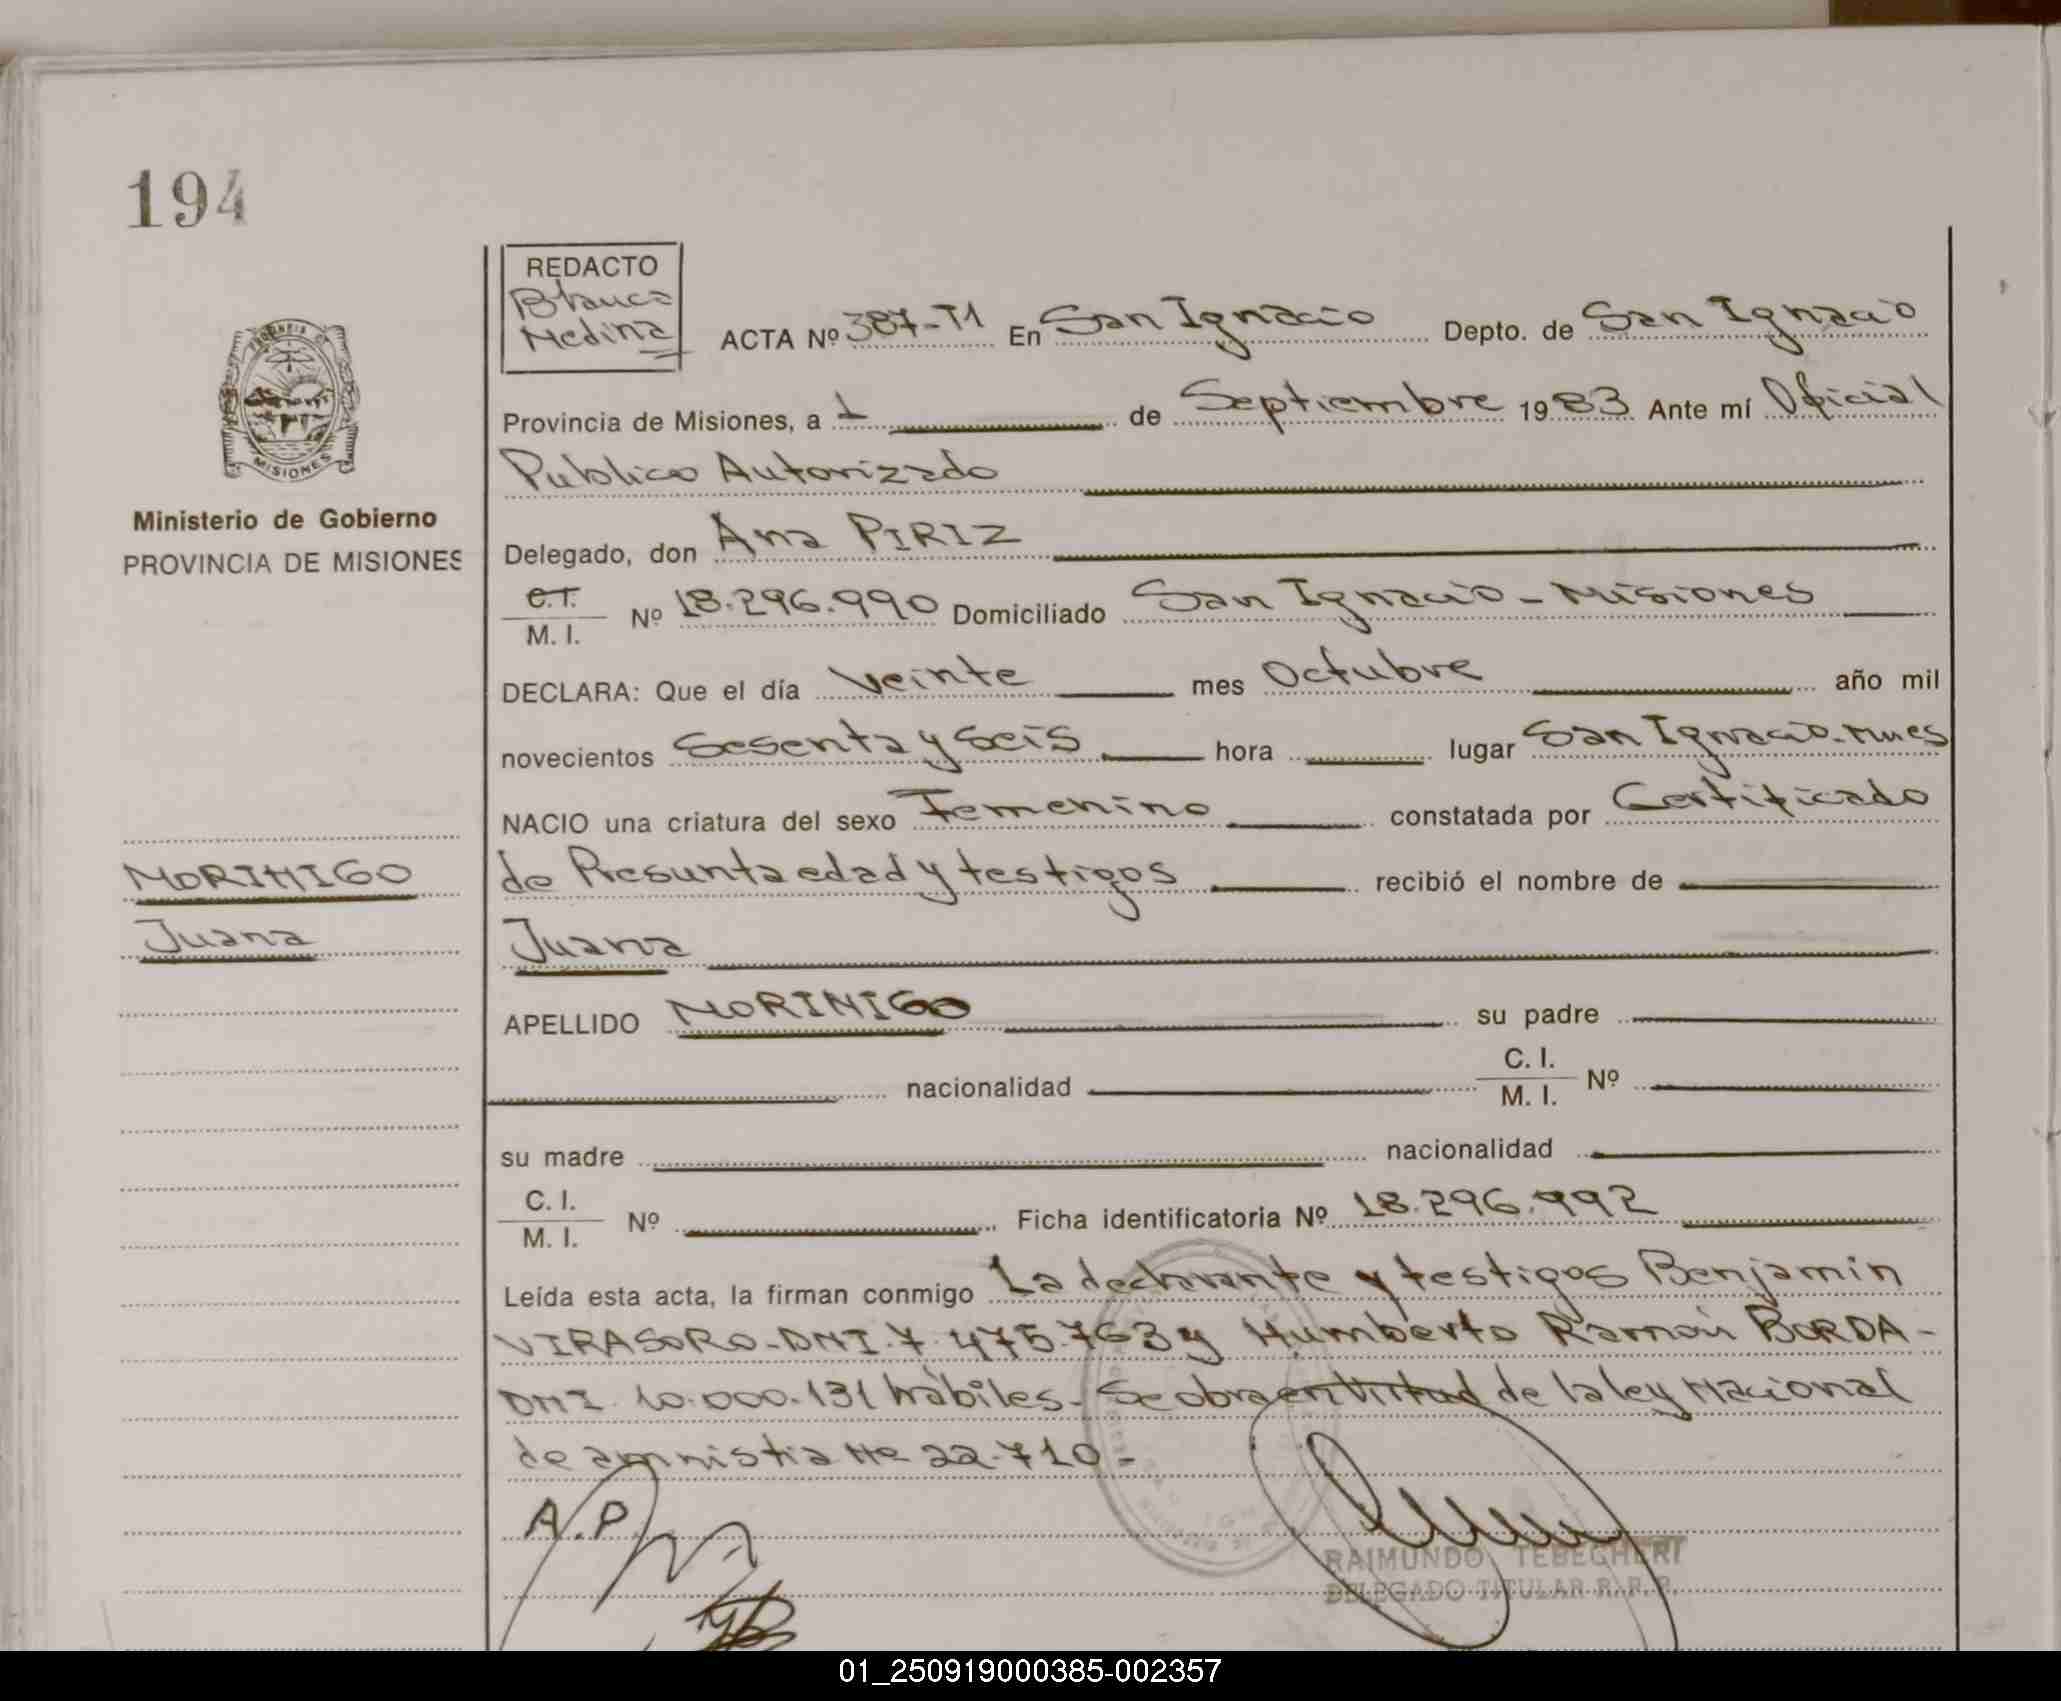 194
REDACTO
Blanca
Medina
ACTA Nº 387-T1 En San Ignacio Depto. de San Ignacio
Provincia de Misiones, a 1 de Septiembre 1983 Ante mí Oficial
Publico Autorizado
MISIONES
Ministerio de Gobierno
PROVINCIA DE MISIONES
Delegado, don Ana PIRIZ
C.I.
M. I. Nº 18.296.990 Domiciliado San Ignacio - Misiones
DECLARA: Que el día veinte mes Octubre año mil
novecientos Sesenta y seis hora lugar San Ignacio-Mnes
NACIO una criatura del sexo Femenino constatada por Certificado
MORINIGO
de Presunta edad y testigos recibió el nombre de
Juana
Juana
APELLIDO MORINIGO su padre
nacionalidad C. I.
M. I. Nº
su madre nacionalidad
C. I.
M. I. Nº Ficha identificatoria Nº 18.296.992
Leída esta acta, la firman conmigo La declarante y testigos Benjamin
VIRASORO-DNI.7.475.763 y Humberto Ramón BORDA-
DNI 10.000.131 hábiles- Se obra en Virtud de la ley Nacional
de amnistia Nº 22.710-
A.P
RAIMUNDO TEBEGHERI
DELEGADO TITULAR R.P.P.
01_250919000385-002357